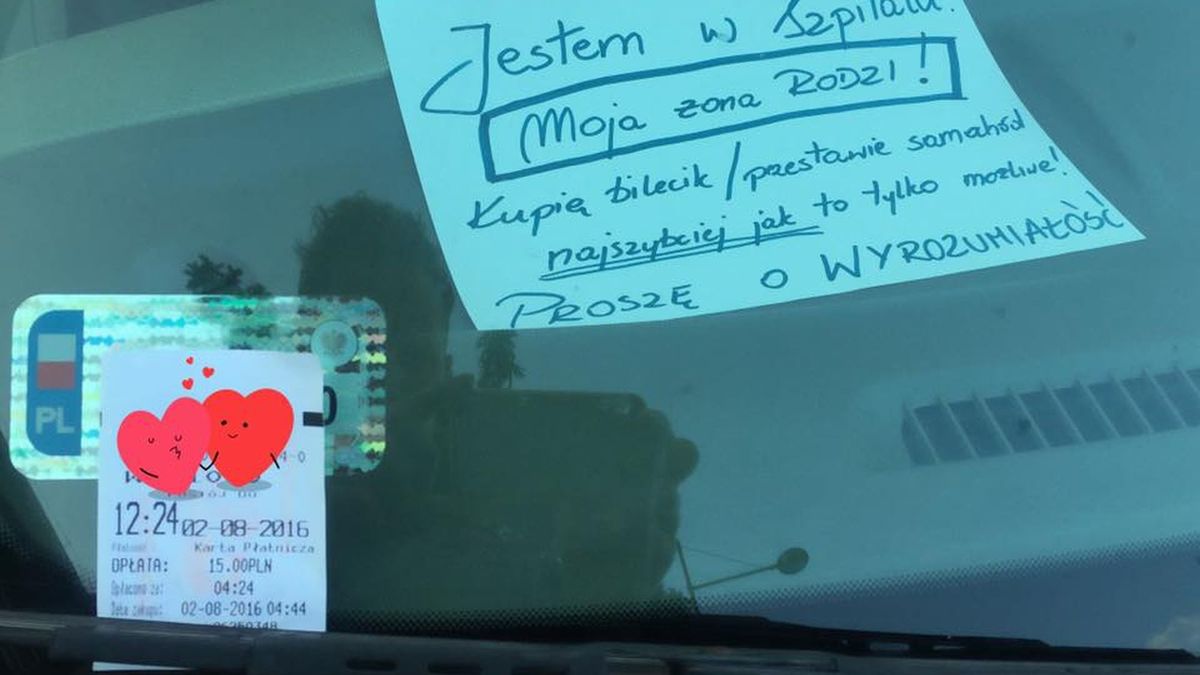 Jestem w Szpitalu!
Moja żona RODZI!
Kupię bilecik / przestawię samochód
najszybciej jak to tylko możliwe!
PROSZĘ O WYROZUMIAŁOŚĆ
PL
0
4-0
12:24 02-08-2016
Karta Płatnicza
OPŁATA: 15.00PLN
Opłacono za: 04:24
Data zakupu: 02-08-2016 04:44